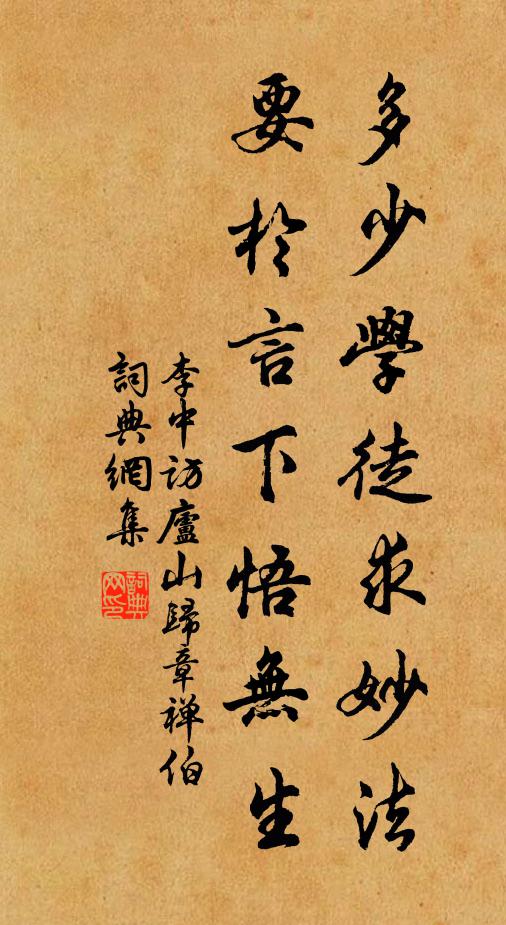 多少學徒求妙法
要於言下悟無生
李中訪廬山歸章禅伯
詞典網集
詞典
网印